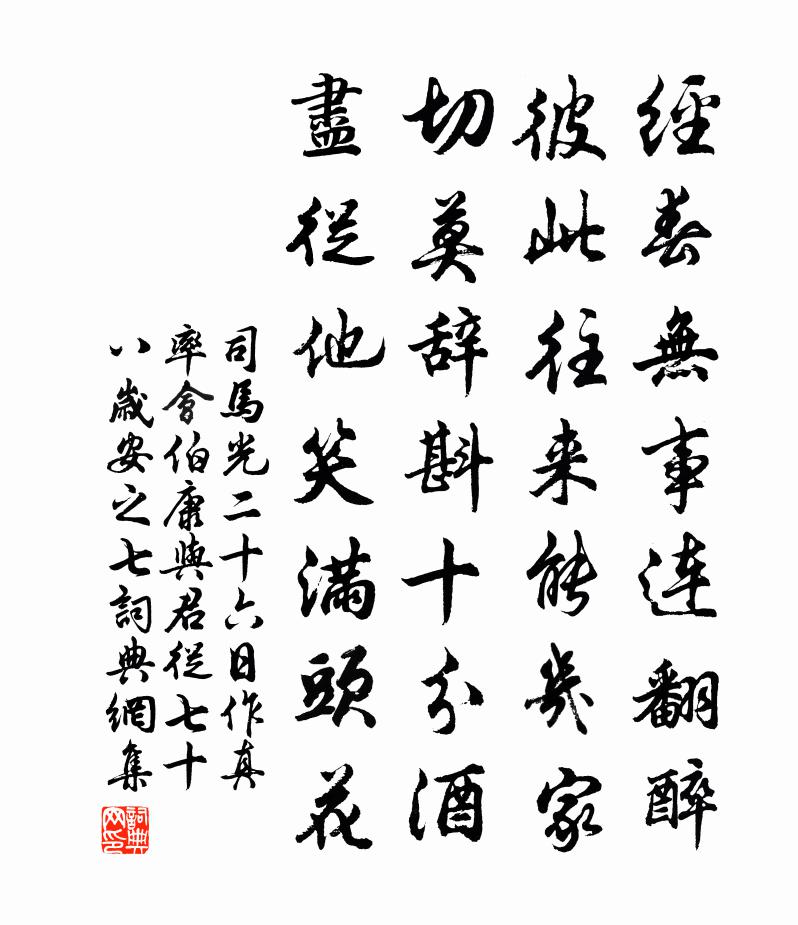 經春無事連翻醉
彼此往来能幾家
切莫辭斟十分酒
盡從他笑滿頭花
司馬光二十六日作真
率會伯康與君從七十
八歲安之七詞典網集
詞典网印